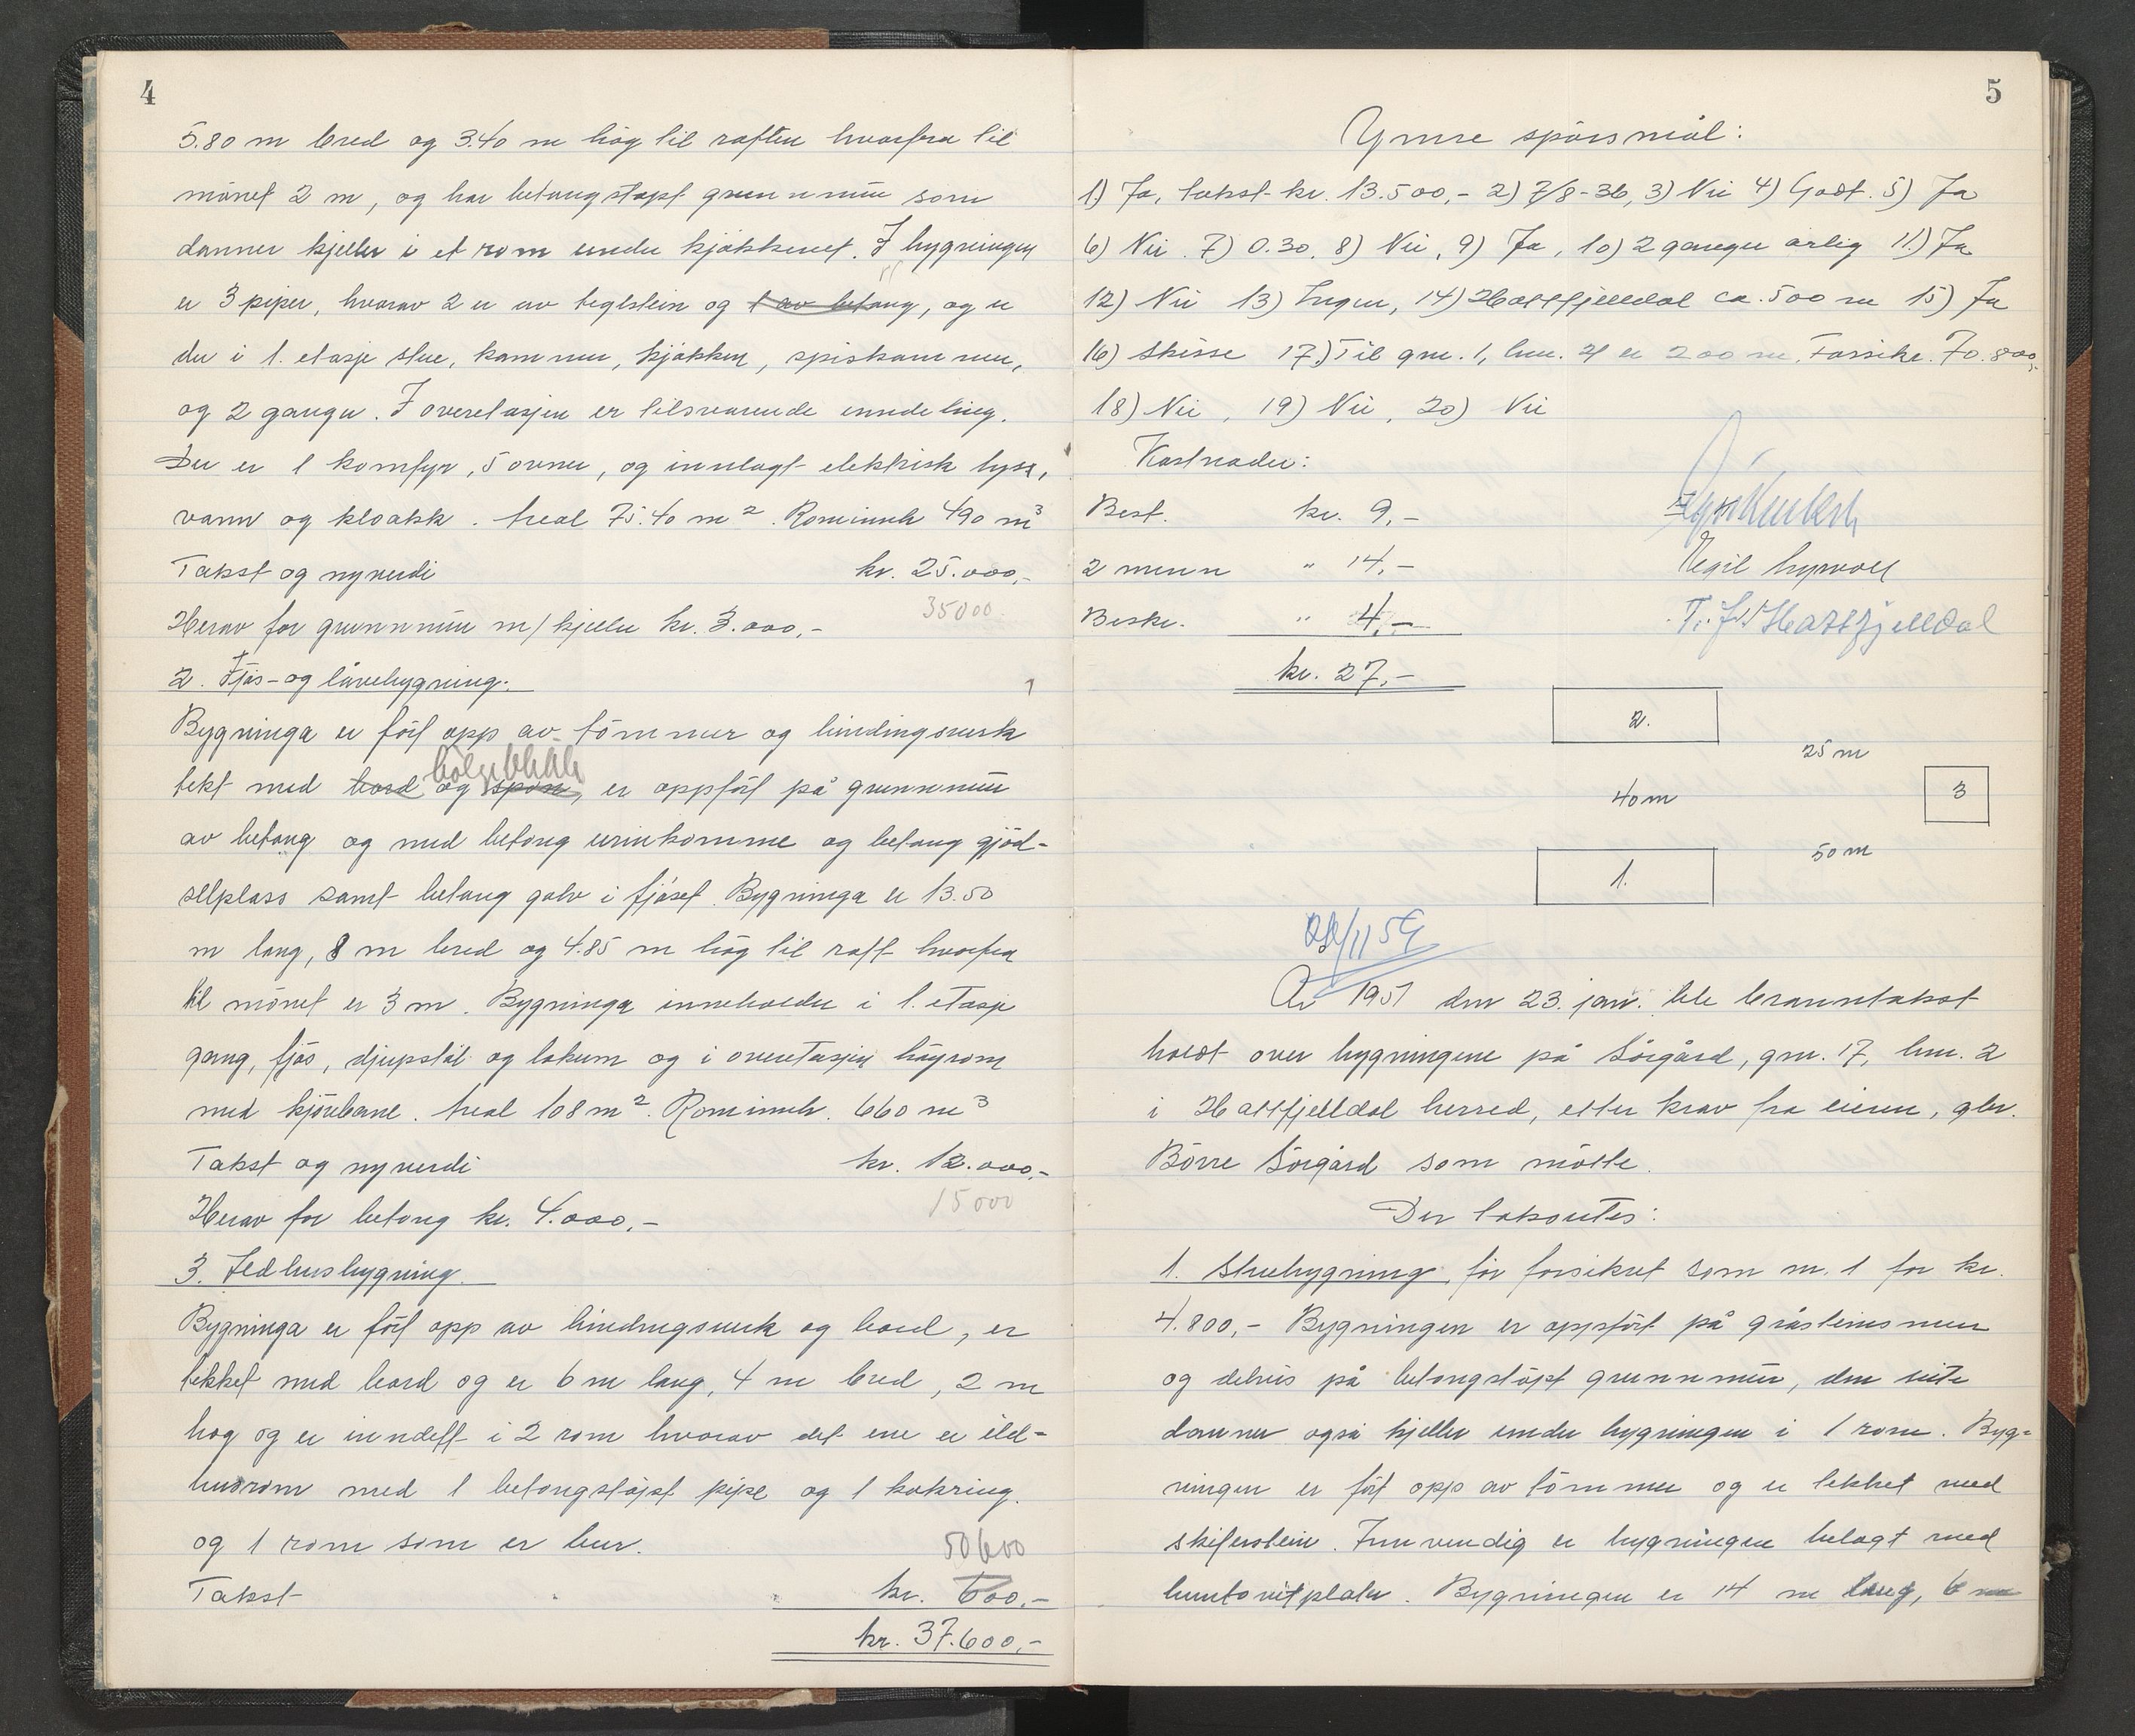 4
5.80 m bred og 3.40 m høg til raften hvorfra til
mønet 2 m, og har betongstøpt grunnmur som
danner kjeller i et rom under kjøkkenet. I bygningen
er 3 piper, hvorav 2 er av teglstein og 1 av betong, og er
der i 1. etasje stue, kammer, kjøkken, spiskammer,
og 2 ganger. I overetasjen er tilsvarende inndeling.
Der er 1 komfyr, 5 ovner, og innlagt elektrisk lys,
vann og kloakk. Areal 75.40 m². Rominnh 490 m³
Takst og nyverdi kr. 25.000,-
35000
Herav for grunnmur m/kjeller kr. 3.000,-
2. Fjøs- og låvebygning.
Bygninga er ført opp av tømmer og bindingsverk
bølgeblikk
tekt med bord og spon, er oppført på grunnmur
av betong og med betong urinkomme og betong gjød-
selplass samt betong golv i fjøset. Bygninga er 13.50
m lang, 8 m bred og 4.85 m høg til raft hvorfra
til mønet er 3 m. Bygninga inneholder i 1. etasje
gang, fjøs, djupstål og lokum og i overetasjen høyrom
med kjørebane. Areal 108 m². Rominnh. 660 m³
Takst og nyverdi kr. 12.000,-
15000
Herav for betong kr. 4.000,-
3. Ildhusbygning.
Bygninga er ført opp av bindingsverk og bord, er
tekket med bord og er 6 m lang, 4 m bred, 2 m
høg og er inndelt i 2 rom hvorav det ene er ild-
husrom med 1 betongstøpt pipe og 1 kokring.
og 1 rom som er bur.
50600
Takst kr. 600.-
kr. 37.600,-
5
Ymse spørsmål:
1) Ja, takst kr. 13.500,- 2) 7/8-36, 3) Nei 4) Godt. 5) Ja
6) Nei. 7) 0.30. 8) Nei, 9) Ja, 10) 2 ganger årlig 11) Ja
12) Nei 13) Ingen, 14) Hattfjelldal ca. 500 m 15) Ja
16) Skisse 17.) Til gnr. 1, bnr. 21 er 200 m. Forsikr. 70.800,-
18) Nei, 19) Nei, 20) Nei
Kostnader:
Best. kr. 9,-
2 menn " 14,-
Egil
Beskr. " 4,-
Hattfjelldal
kr. 27,-
2.
25 m
40 m
3
50 m
1.
År 1951 den 23. jan. ble branntakst
holdt over bygningene på Sørgård, gnr. 17, bnr. 2
i Hattfjelldal herred, etter krav fra eieren, gbr.
Børre Sørgård som møtte.
Der taksertes:
1. Stuebygning, før forsikret som nr. 1 for kr.
4.800,- Bygningen er oppført på gråsteinsmur
og delvis på betongstøpt grunnmur, den siste
danner også kjeller under bygningen i 1 rom. Byg-
ningen er ført opp av tømmer og er tekket med
skiferstein. Innvendig er bygningen belagt med
huntonitplater. Bygningen er 14 m lang, 6 m